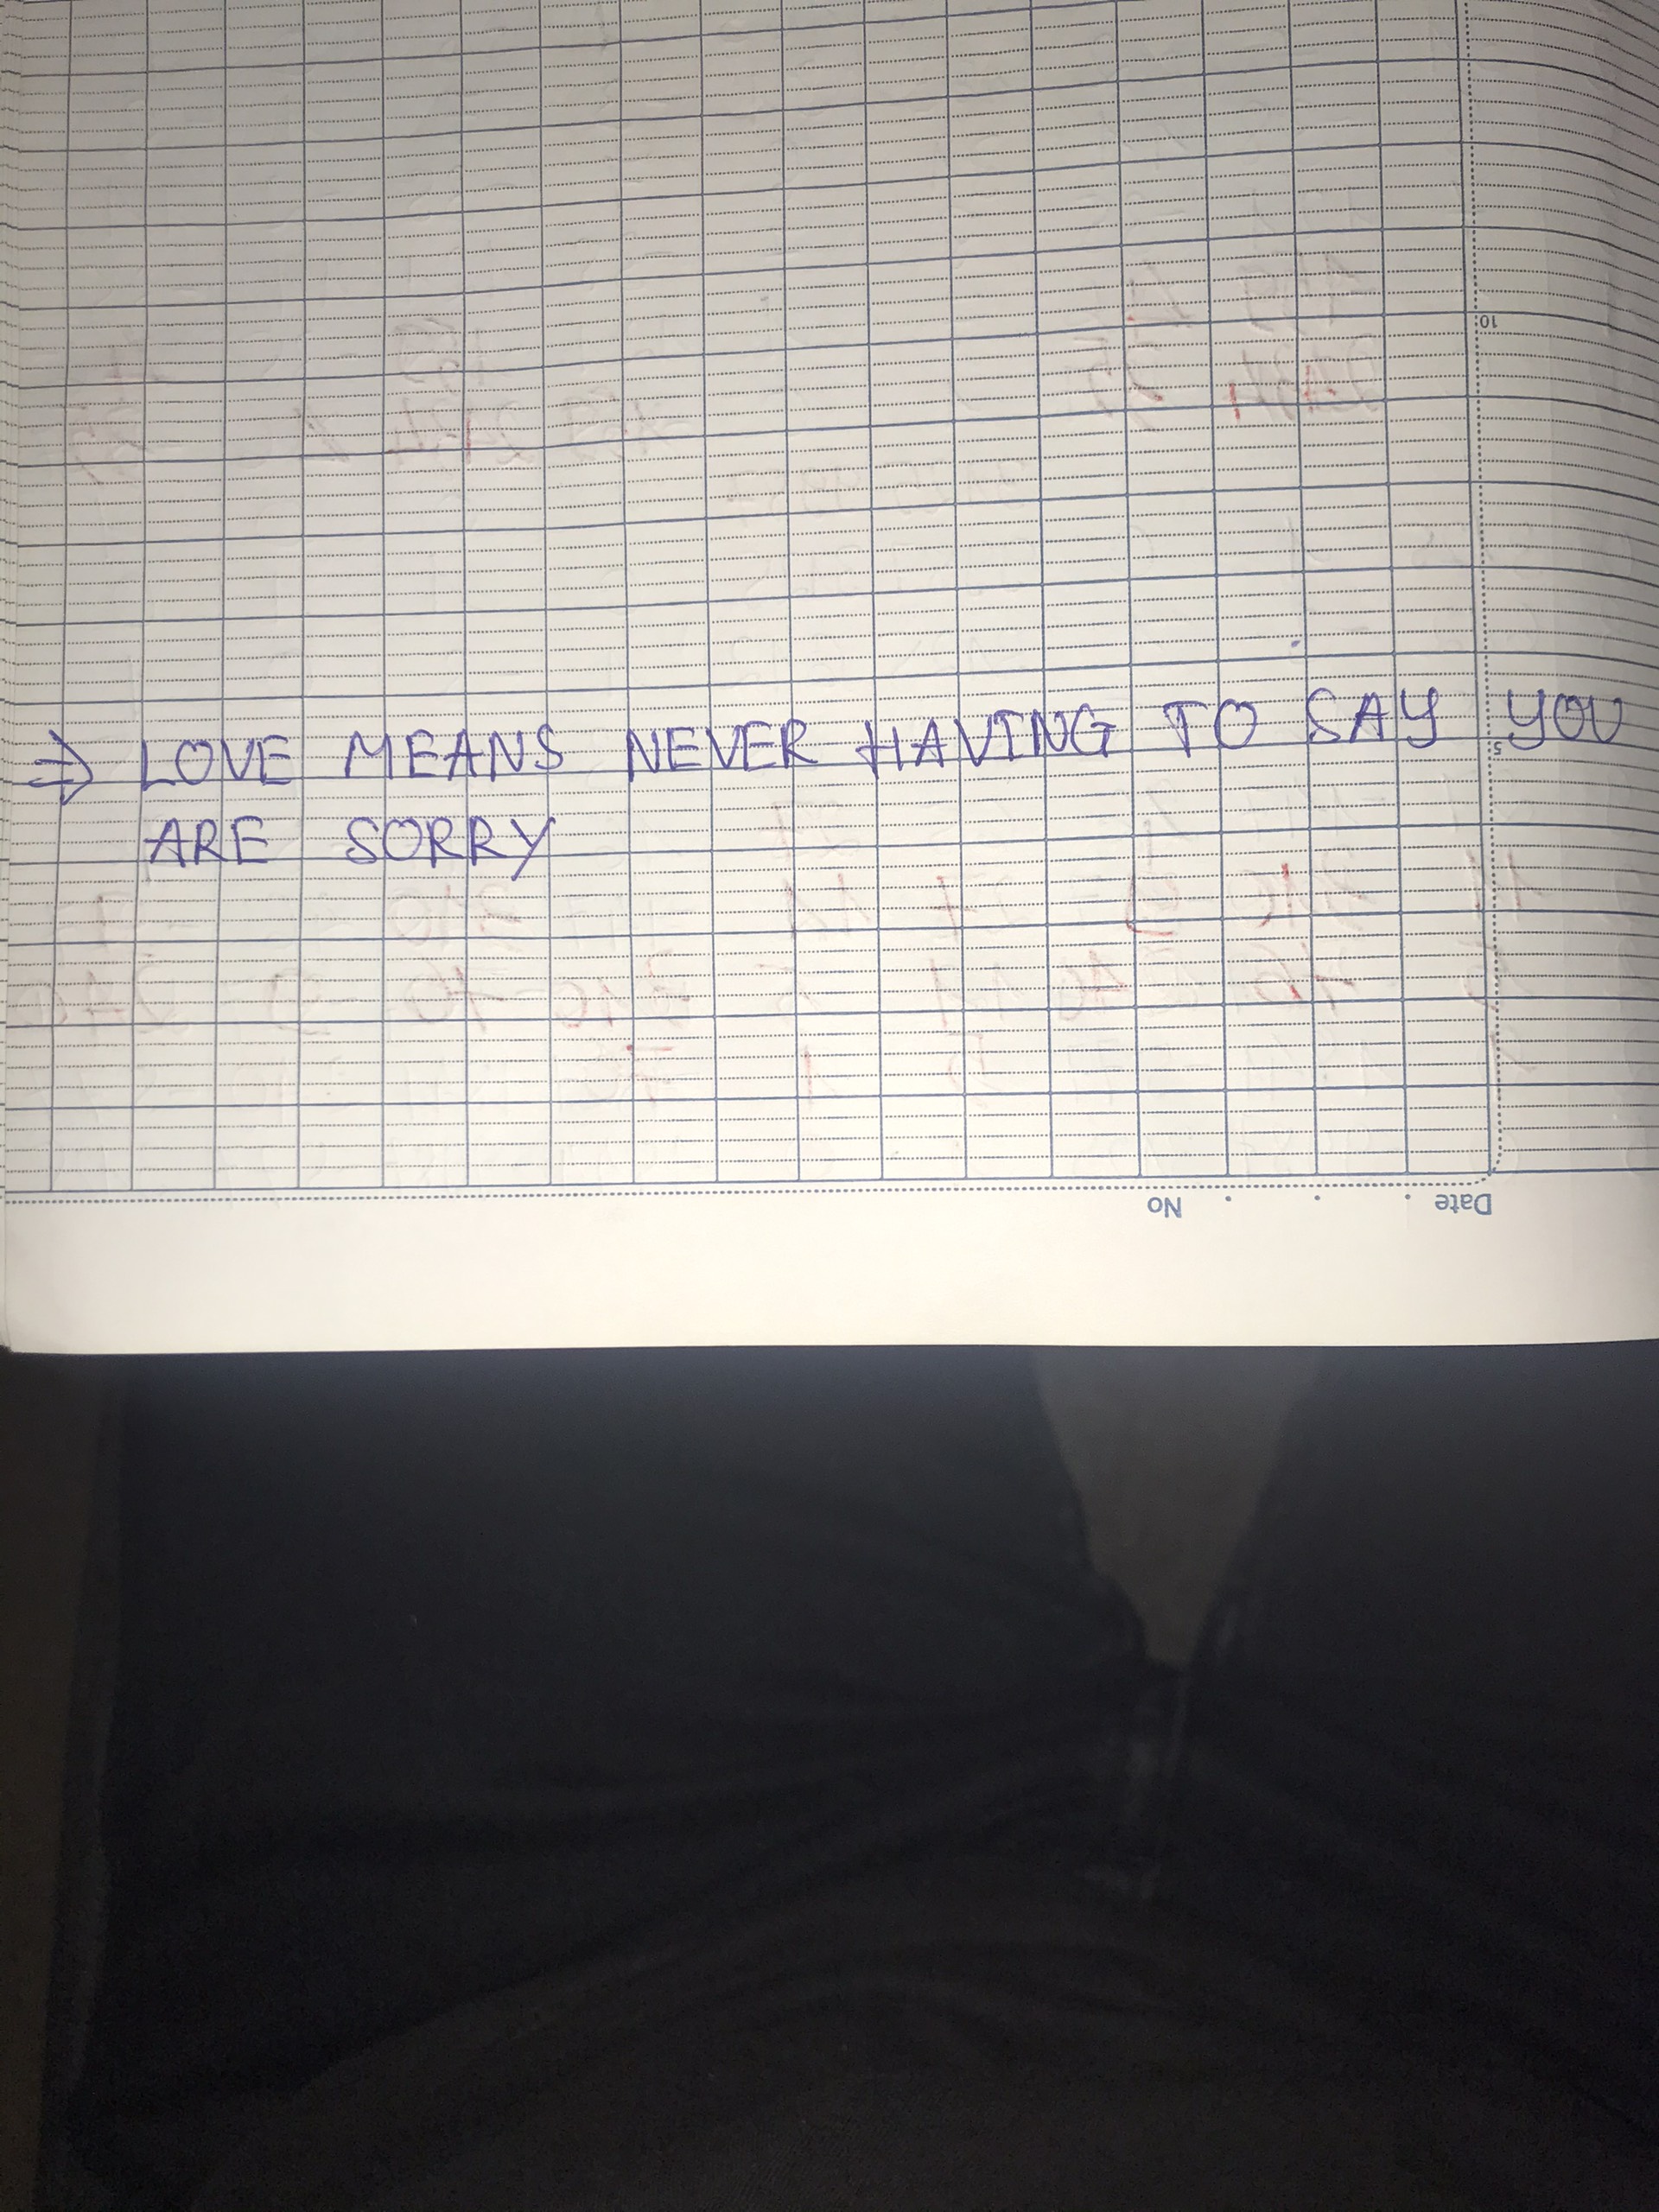 ⇒ LOVE MEANS NEVER HAVING TO SAY YOU
ARE SORRY
10
5
Date . . . No